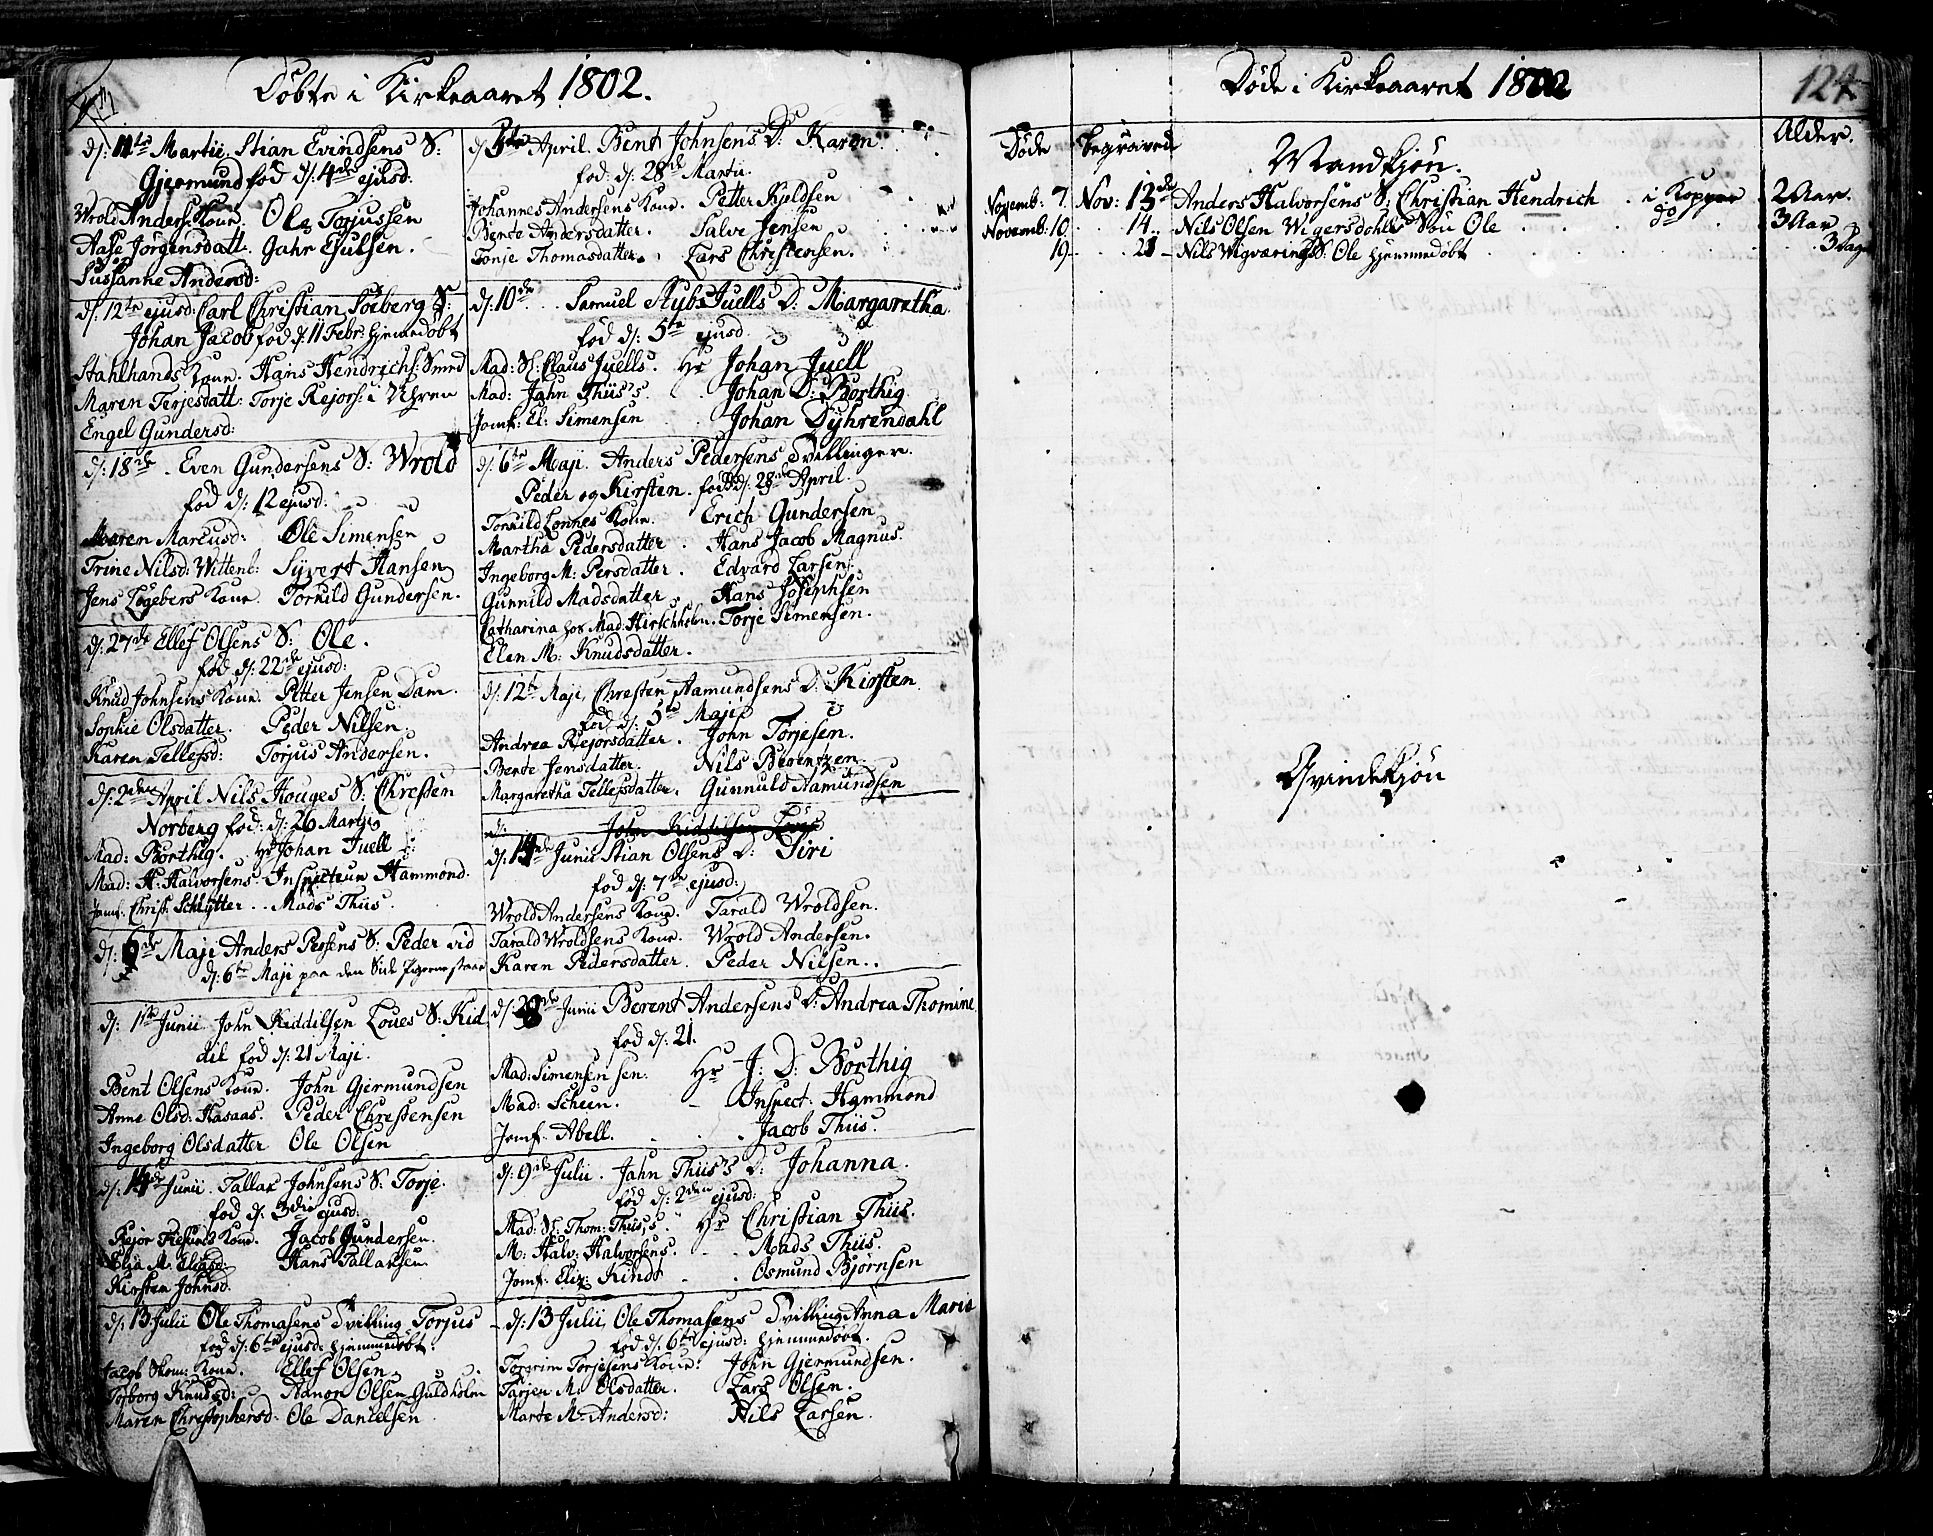 Døbte i Kirkeaaret 1802.
d: 11te Martii. Stian Evindsens S:
Gjermund fød d: 4de ejusd:
Wrold Anders: Kone. Ole Torjussen
Aase Jørgensdatt: Gahr Ejulsen.
Sussanne Andersd:
d: 12te ejusd: Carl Christian Soeberg S:
Johan Jacob fød d: 11 Febr: hjemmedøbt
Stahlhands Kone. Hans Hendrichs: Smed
Maren Terjesdatt: Torje Rejors: i
Engel Gundersd:
d: 18de. Even Gundersens S: Wrold
fød d: 12 ejusd:
Maren Marcusd: Ole Simensen
Trine Nilsd: Wittenb: Syvert Hansen
Jens Legebers Kone. Torkild Gundersen.
d: 27de Ellef Olsens S: Ole.
fød d: 22de ejusd:
Knud Johnsens Kone. Petter Jensen Dam.
Sophie Olsdatter. Peder Nilsen
Karen Tellefsd: Torjus Andersen.
d: 2den April Nils Houges S: Christen
Norberg fød: d: 26 Martii
Mad: Borthig. Hr Johan Juell
Mad: H: Halvorsens. Inspecteur Hammond.
Jomf. Chrif: Schlytter. Mads Thiis.
d: 6te Maji Anders Persens S: Peder vid
d: 6te Maji paa den Side
d: 1te Junii John Kiddilsen Loues S: Kid
dil fød d: 21 Maji.
Bent Olsens Kone. John Gjermundsen
Anne Olsd: Hasaas. Peder Christensen
Ingeborg Olsdatter Ole Olsen
d: 14de Junii. Tallak Johnsens S: Torje.
fød d: 3die ejusd:
Rejor Kone. Jacob Gundersen.
M. Hans Tallaksen
Kirsten Johnsd.
d: 13 Julii Ole Thomasens Tvilling Torjus
fød d: 6te ejusd: hjemmedøbt.
Jacob Skom: Kone. Ellef Olsen
Torborg Knudsd: Aanon Olsen Guldholm
Maren Christophersd. Ole Danielsen.
d: 5te April. Bent Johnsens D: Karen.
fød: d: 28de Martii.
Johannes Andersens Kone. Petter Kjeldsen
Berte Andersdatter. Salve Jensen
Tonje Thomasdatter. Lars Christensen.
d: 10de. Samuel Rybs Juells D: Margaretha.
fød d: 5te ejusd
Mad: Sl: Claus Juells. Hr Johan Juell
Mad: Jahn Thiis's. Johan D: Borthig.
Jomf: El: Simensen Johan Dyhrendahl
d: 6te Maji. Anders Pedersens Tvillinger.
Peder og Kirsten. fødd d: 28de April.
Torkild Lonnes Kone. Erich Gundersen
Martha Pedersdatter. Hans Jacob Magnus.
Ingeborg M: Persdatter. Edvard Larsen.
Gunnild Madsdatter. Hans Josephsen
Catharina hos Mad: Hirschholm. Torje Simensen.
Elen M: Knudsdatter.
d: 12te Maji, Christen Aamundsens D: Kirsten
fød d: 5te Maji
Andrea Rejorsdatter. John Torjesen.
Berte Jensdatter. Nils Berentzen.
Margaretha Tellefsdatter. Gunnuld Aamundsen
d: John Kiddilsen Loues
d: 14de Junii Stian Olsens D: Siri
fød d: 7de ejusd:
Wrold Andersens Kone. Tarald Wroldsen.
Tarald Wroldsens Kone. Wrold Andersen.
Karen Pedersdatter. Peder Nilsen.
d: 28de Junii Berent Andersens D: Andrea Thomine
fød d: 21.
Mad: Simensen sen. Hr J: D: Borthig
Mad: Scheen. - Inspect. Hammond
Jomf. Abell. Jacob Thiis.
d: 9de Julii. Jahn Thiis's D: Johanna.
fød d: 2den ejusd:
Mad: Sl: Thom: Thiis's. Hr Christian Thiis.
M: Halv: Halvorsens. Mads Thiis.
Jomf: Eliz: Kindt Osmund Bjørnsen
d: 13 Julii, Ole Thomasens Tvilling Anna Maria
fød d: 6te ejusd: hjemmedøbt.
Torgrim Torjesens Kone: John Gjermundsen.
Tarjer M: Olsdatter. Lars Olsen.
Marte M: Andersd: Nils Larsen.
Døde i Kirkeaaret 1802
124
Døde Begravede Alder.
Mandkjøn.
Novemb: 7. Nov: 13de Anders Halvorsens S: Christian Hendrich. i Kopper 2 Aar.
Novemb: 10 14. Nils Olsen Wigersdohls Søn Ole do 3 Aar
19 21 Nils Wigværings S: Ole hjemmedøbt 3 Dage
Qvindekjøn